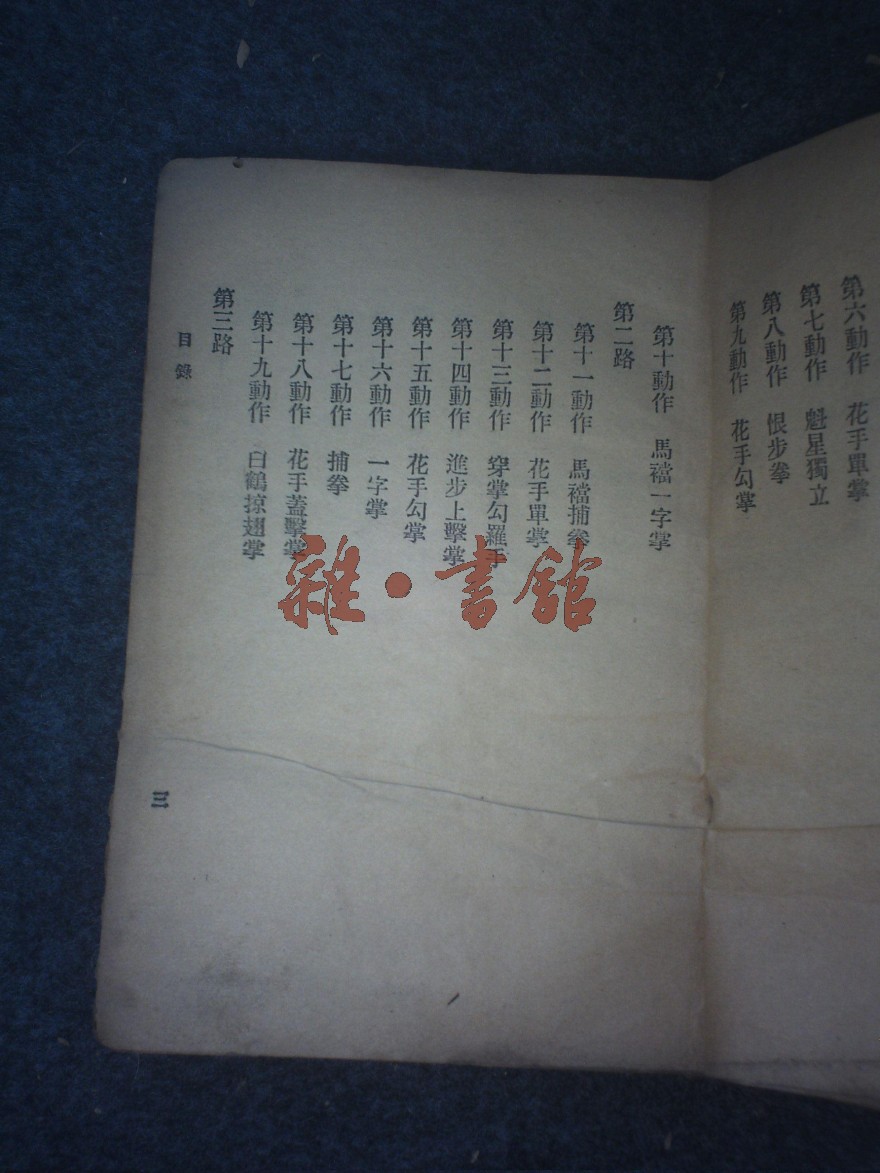 第六動作 花手單掌
第七動作 魁星獨立
第八動作 恨步拳
第九動作 花手勾掌
第十動作 馬襠一字掌
第二路
第十一動作 馬襠捕拳
第十二動作 花手單掌
第十三動作 穿掌勾羅手
第十四動作 進步上擊掌
第十五動作 花手勾掌
第十六動作 一字掌
第十七動作 捕拳
第十八動作 花手蓋擊掌
第十九動作 白鶴掠翅掌
第三路
目錄
三
雜·書館